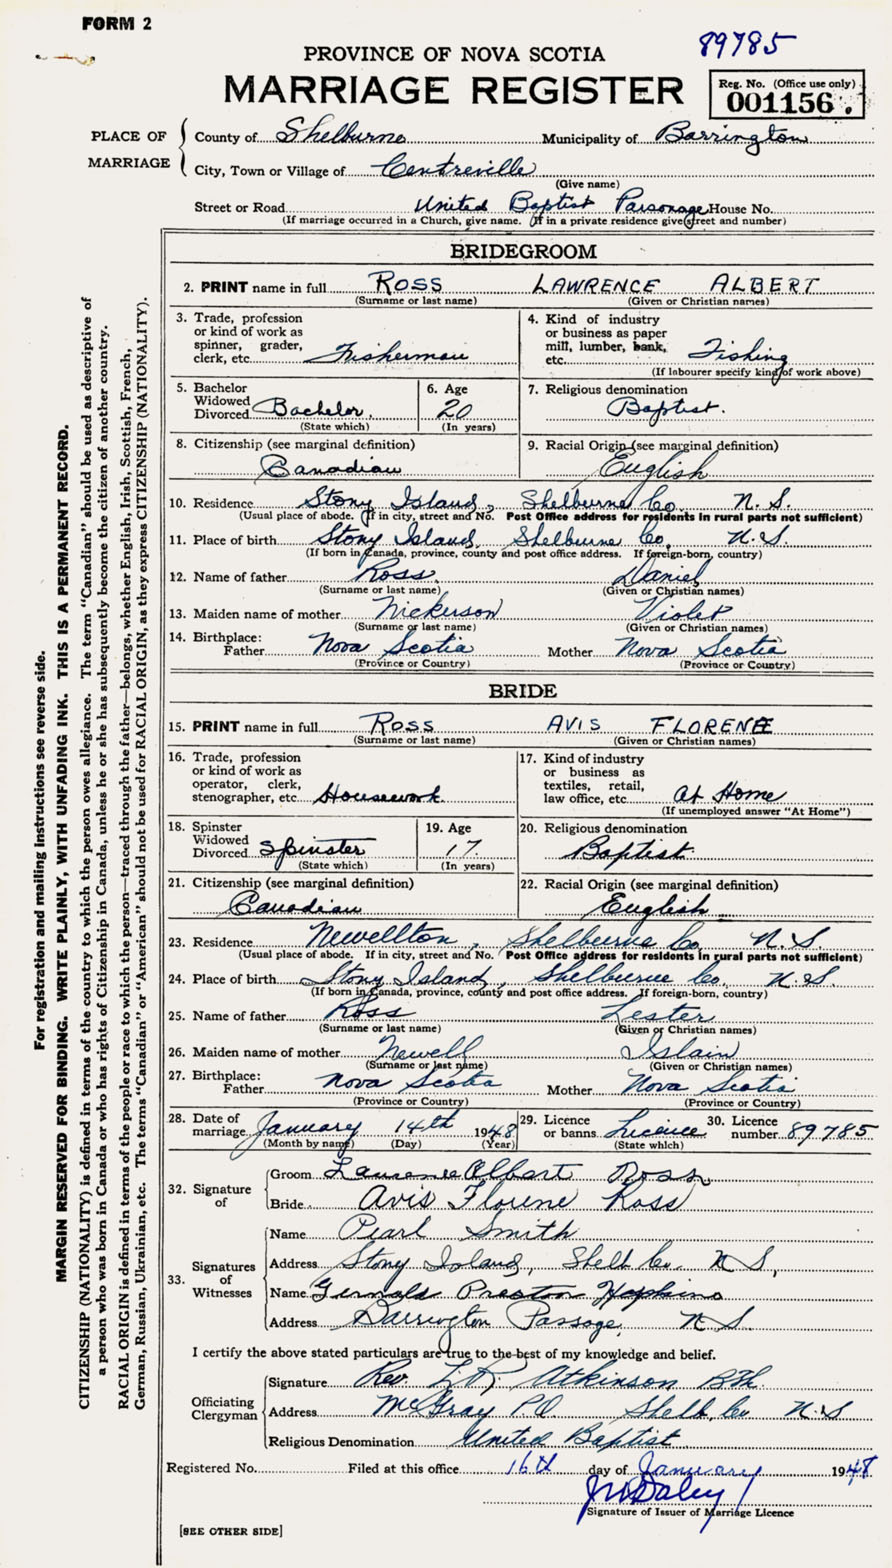 FORM 2
89785
PROVINCE OF NOVA SCOTIA
MARRIAGE REGISTER
Reg. No. (Office use only)
001156.
PLACE OF MARRIAGE
County of Shelburne Municipality of Barrington
City, Town or Village of Centreville
(Give name)
Street or Road United Baptist Parsonage House No.
(If marriage occurred in a Church, give name. If in a private residence give street and number)
BRIDEGROOM
2. PRINT name in full ROSS LAWRENCE ALBERT
(Surname or last name) (Given or Christian names)
3. Trade, profession or kind of work as spinner, grader, clerk, etc. Fisherman
4. Kind of industry or business as paper mill, lumber, bank, etc. Fishing
(If labourer specify kind of work above)
5. Bachelor Widowed Divorced Bachelor
(State which)
6. Age 20
(In years)
7. Religious denomination
Baptist.
8. Citizenship (see marginal definition)
Canadian
9. Racial Origin (see marginal definition)
English
10. Residence Stony Island, Shelburne Co. N.S.
(Usual place of abode. If in city, street and No. Post Office address for residents in rural parts not sufficient)
11. Place of birth Stony Island, Shelburne Co. N.S.
(If born in Canada, province, county and post office address. If foreign-born, country)
12. Name of father Ross Daniel
(Surname or last name) (Given or Christian names)
13. Maiden name of mother Nickerson Violet
(Surname or last name) (Given or Christian names)
14. Birthplace:
Father Nova Scotia Mother Nova Scotia
(Province or Country) (Province or Country)
BRIDE
15. PRINT name in full ROSS AVIS FLORENE
(Surname or last name) (Given or Christian names)
16. Trade, profession or kind of work as operator, clerk, stenographer, etc. Housework
17. Kind of industry or business as textiles, retail, law office, etc. At Home
(If unemployed answer "At Home")
18. Spinster Widowed Divorced Spinster
(State which)
19. Age 17
(In years)
20. Religious denomination
Baptist
21. Citizenship (see marginal definition)
Canadian
22. Racial Origin (see marginal definition)
English
23. Residence Newellton, Shelburne Co. N.S.
(Usual place of abode. If in city, street and No. Post Office address for residents in rural parts not sufficient)
24. Place of birth Stony Island, Shelburne Co. N.S.
(If born in Canada, province, county and post office address. If foreign-born, country)
25. Name of father Ross Lester
(Surname or last name) (Given or Christian names)
26. Maiden name of mother Newell Islain
(Surname or last name) (Given or Christian names)
27. Birthplace:
Father Nova Scotia Mother Nova Scotia
(Province or Country) (Province or Country)
28. Date of marriage January 14th 1948
(Month by name) (Day) (Year)
29. Licence or banns Licence
(State which)
30. Licence number 89785
32. Signature of
Groom Lawrence Albert Ross
Bride Avis Florene Ross
33. Signatures of Witnesses
Name Pearl Smith
Address Stony Island, Shelb Co. N.S.
Name Preston Hopkins
Address Barrington Passage, N.S.
I certify the above stated particulars are true to the best of my knowledge and belief.
Officiating Clergyman
Signature Rev. Atkinson B.Th.
Address McGray P.O. Shelb. Co N.S
Religious Denomination United Baptist
Registered No. Filed at this office 16th day of January 1948
Signature of Issuer of Marriage Licence
[SEE OTHER SIDE]
For registration and mailing instructions see reverse side.
MARGIN RESERVED FOR BINDING. WRITE PLAINLY, WITH UNFADING INK. THIS IS A PERMANENT RECORD.
CITIZENSHIP (NATIONALITY) is defined in terms of the country to which the person owes allegiance. The term "Canadian" should be used as descriptive of
a person who was born in Canada or who has rights of Citizenship in Canada, unless he or she has subsequently become the citizen of another country.
RACIAL ORIGIN is defined in terms of the people or race to which the person—traced through the father—belongs, whether English, Irish, Scottish, French,
German, Russian, Ukrainian, etc. The terms "Canadian" or "American" should not be used for RACIAL ORIGIN, as they express CITIZENSHIP (NATIONALITY).